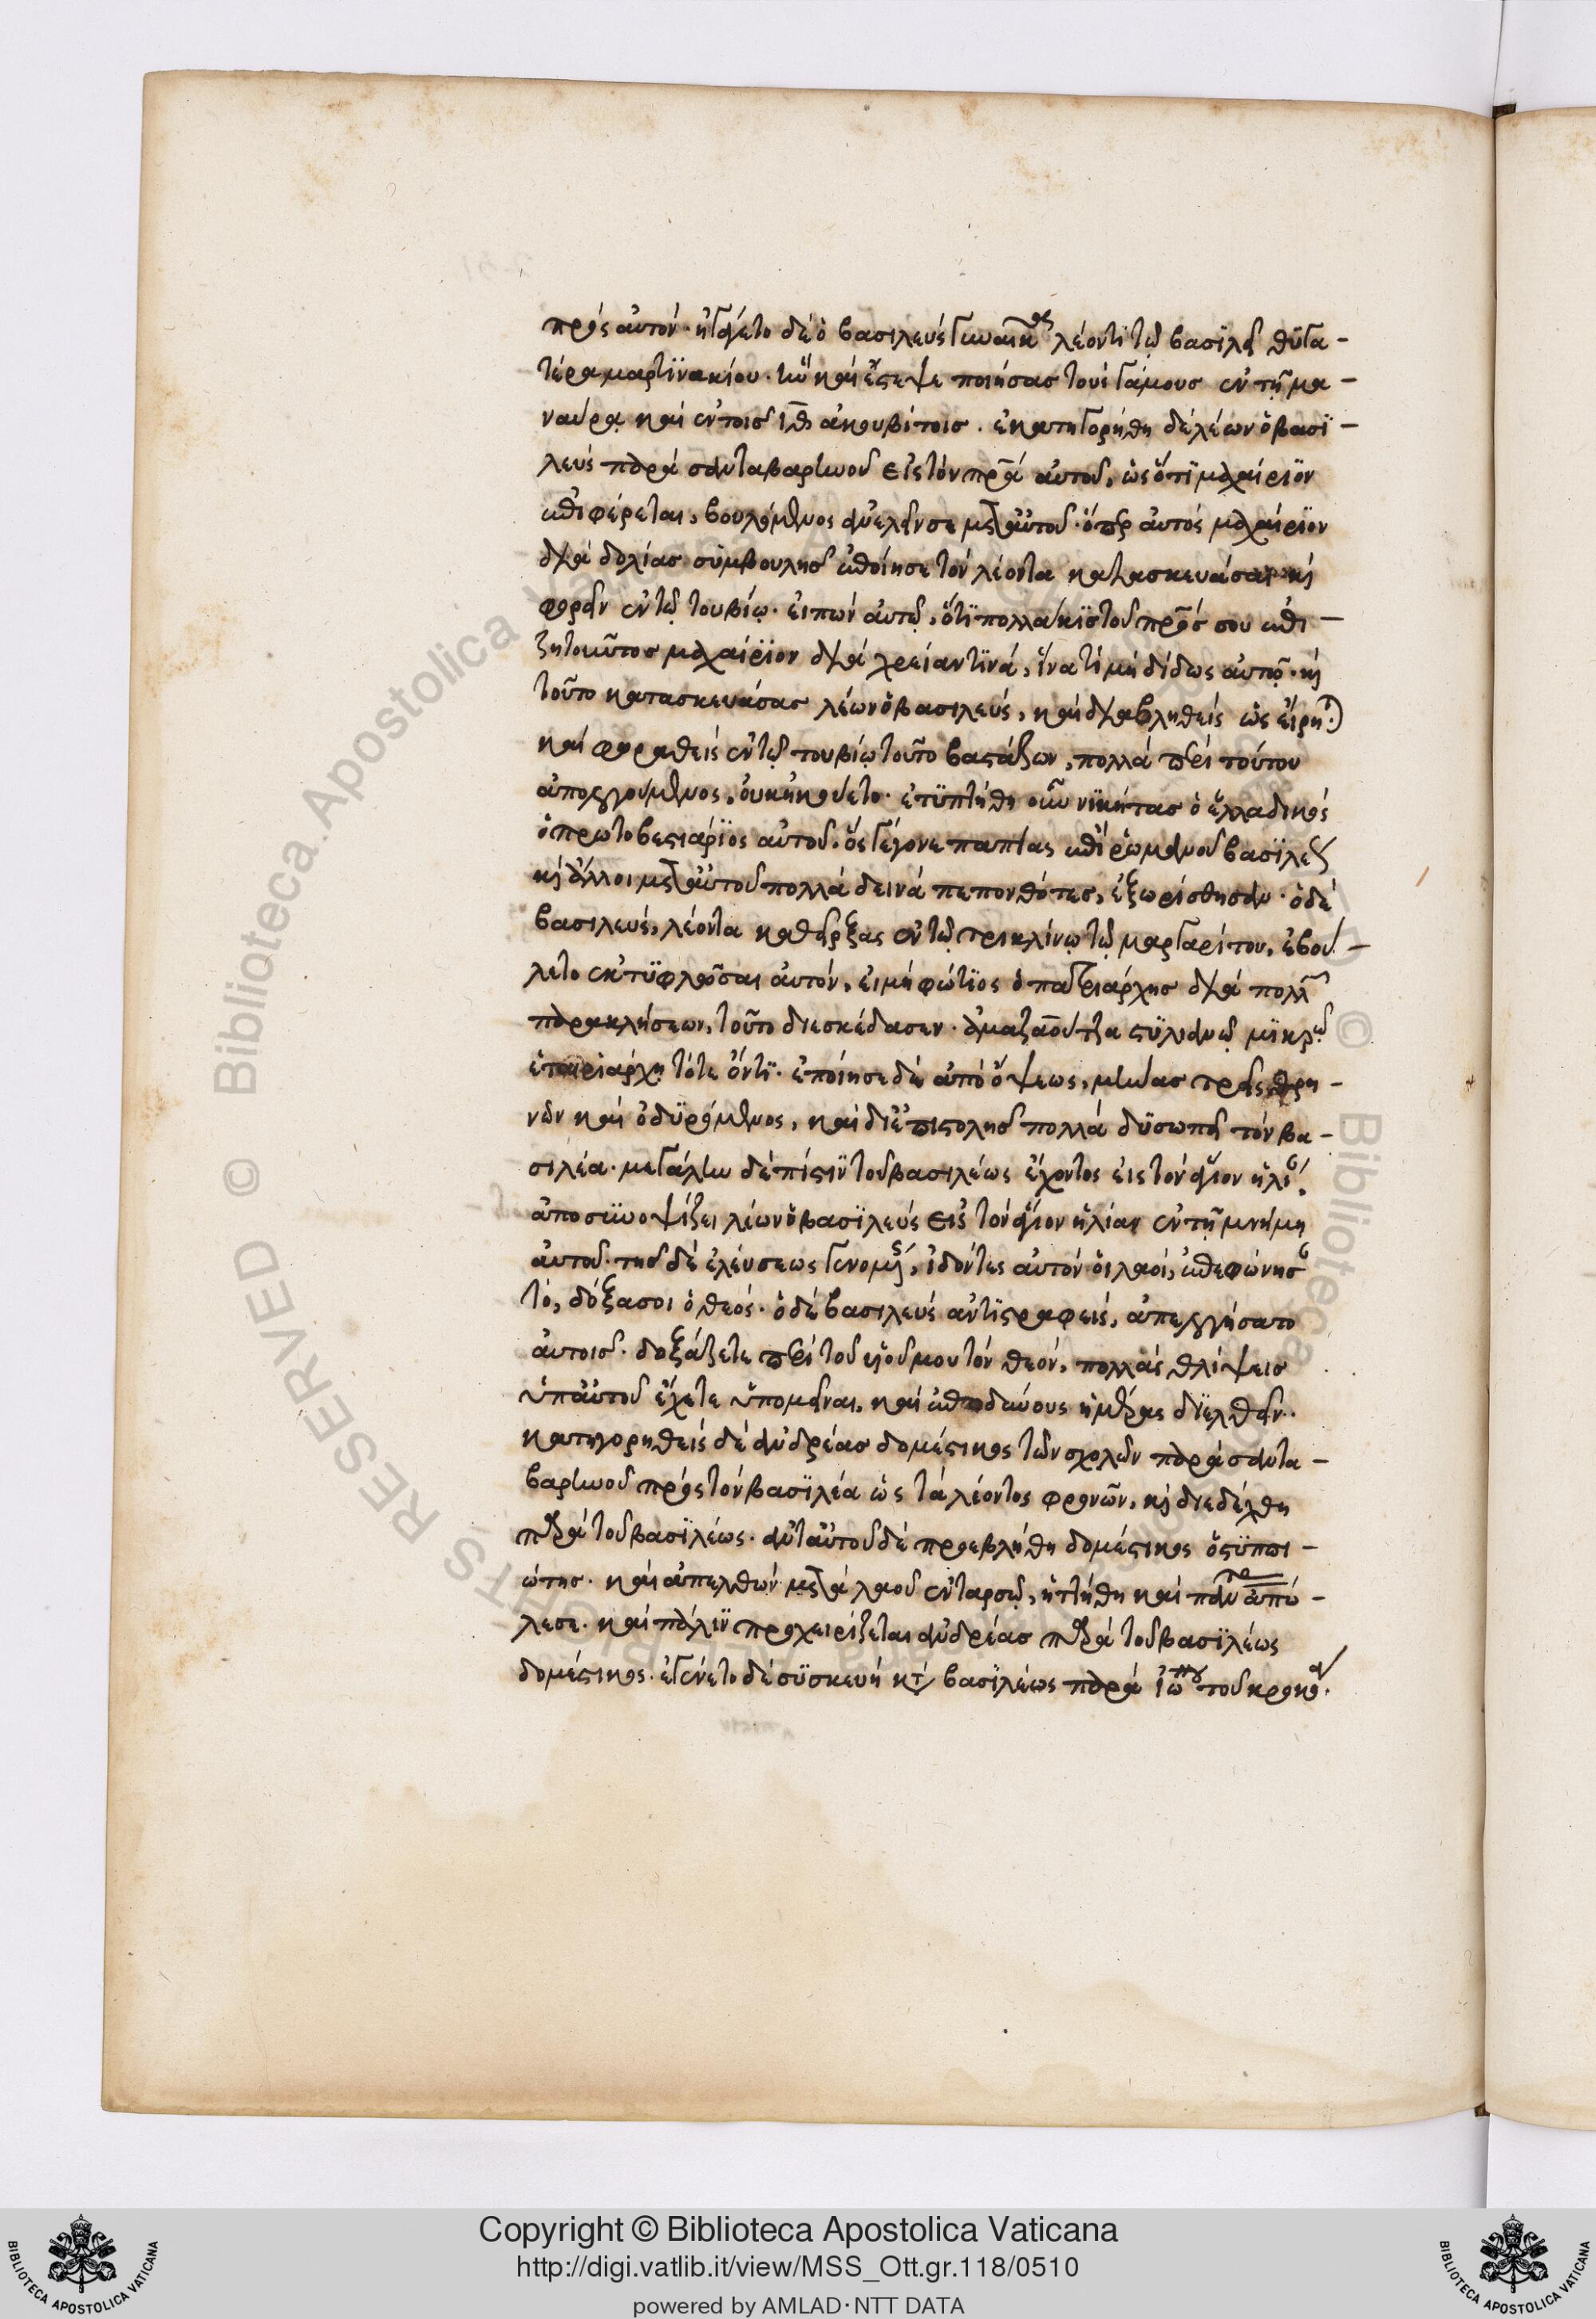 πρὸς αὐτόν· ἠγάγετο δὲ ὁ βασιλεὺς γυναῖκα λέοντι τῷ βασιλεῖ θυγα-
τέρα μαρτινακίου. ἣν καὶ ἔστεψε ποιήσας τοὺς γάμους ἐν τῇ μα-
ναύρᾳ καὶ ἐν τοῖς ιθ ἀκουβίτοις. ἐκατηγορήθη δὲ λέων ὁ βασι-
λεὺς παρὰ σανταβαρηνοῦ εἰς τὸν πρα αὐτοῦ, ὡς ὅτι μαχαίριον
ἐπιφέρεται, βουλόμενος ἀνελεῖν σε μετ' αὐτοῦ. ὅπερ αὐτὸς μαχαίριον
διὰ δολίας συμβουλῆς ἐποίησε τὸν λέοντα κατασκευάσαι καὶ
φορεῖν ἐν τῷ τουβίῳ. εἰπὼν αὐτῷ, ὅτι πολλάκις τοῦ πρς σου ἐπι-
ζητοῦντος μαχαίριον διὰ χρείαν τινά, ἵνα τί μὴ δίδως αὐτῷ. καὶ
τοῦτο κατασκευάσας λέων ὁ βασιλεύς, καὶ διαβληθεὶς ὡς εἴρηται
καὶ φωραθεὶς ἐν τῷ τουβίῳ τοῦτο βαστάζων, πολλὰ περὶ τούτου
ἀπολογούμενος, οὐκ ἠκούετο. ἐτύπτήθη οὖν νικήτας ὁ ἑλλαδικὸς
ὁ πρωτοβεστιάριος αὐτοῦ. ὃς γέγονε παπίας ἐπὶ ῥωμανοῦ βασιλέως
καὶ ἄλλοι μετ' αὐτοῦ πολλὰ δεινὰ πεπονθότες, ἐξωρίσθησαν. ὁ δὲ
βασιλεύς, λέοντα καθείρξας ἐν τῷ τρικλίνῳ τῷ μαργαρίτου, ἐβού-
λετο ἐκτυφλῶσαι αὐτόν, εἰ μὴ φώτιος ὁ πατριάρχης διὰ πολλῶν
παρακλήσεων, τοῦτο διεσκέδασεν. ἀμαζαπούτζα στυλιανῷ μικρῷ
ἑταιριάρχῃ τότε ὄντι. ἐποίησε δὲ ἀπὸ ὄψεως, μῆνας τρεῖς θρη-
νῶν καὶ ὀδυρόμενος, καὶ δι' ἐπιστολῆς πολλὰ δυσωπεῖ τὸν βα-
σιλέα. μεγάλην δὲ πίστιν τοῦ βασιλέως ἔχοντος εἰς τὸν ἅγιον ἠλίαν,
ἀποσυνοψίζει λέων ὁ βασιλεὺς εἰς τὸν ἅγιον ἠλίαν ἐν τῇ μνήμῃ
αὐτοῦ. τῆς δὲ ἐλεύσεως γενομένης, ἰδόντες αὐτὸν οἱ λαοί, ἐπεφώνησαν
τό, δόξα σοι ὁ θεός. ὁ δὲ βασιλεὺς ἀντιστραφείς, ἀπελογήσατο
αὐτοῖς. δοξάζετε περὶ τοῦ υἱοῦ μου τὸν θεόν, πολλὰς θλίψεις
ὑπ' αὐτοῦ ἔχετε ὑπομεῖναι, καὶ ἐπωδύνους ἡμέρας διελθεῖν.
κατηγορηθεὶς δὲ ἀνδρέας δομέστικος τῶν σχολῶν παρὰ σαντα-
βαρηνοῦ πρὸς τὸν βασιλέα ὡς τὰ λέοντος φρονῶν, καὶ διεδέχθη
παρὰ τοῦ βασιλέως. ἀντ' αὐτοῦ δὲ προεβλήθη δομέστικος ὁ στυππι-
ώτης. καὶ ἀπελθὼν μετὰ λαοῦ ἐν ταρσῷ, ἡττήθη καὶ πάντα ἀπώ-
λεσε. καὶ πάλιν προχειρίζεται ἀνδρέας παρὰ τοῦ βασιλέως
δομέστικος. ἐγένετο δὲ συσκευὴ κατὰ βασιλέως παρὰ ἰωάννου τοῦ κροκόα.
Copyright © Biblioteca Apostolica Vaticana
http://digi.vatlib.it/view/MSS_Ott.gr.118/0510
powered by AMLAD·NTT DATA